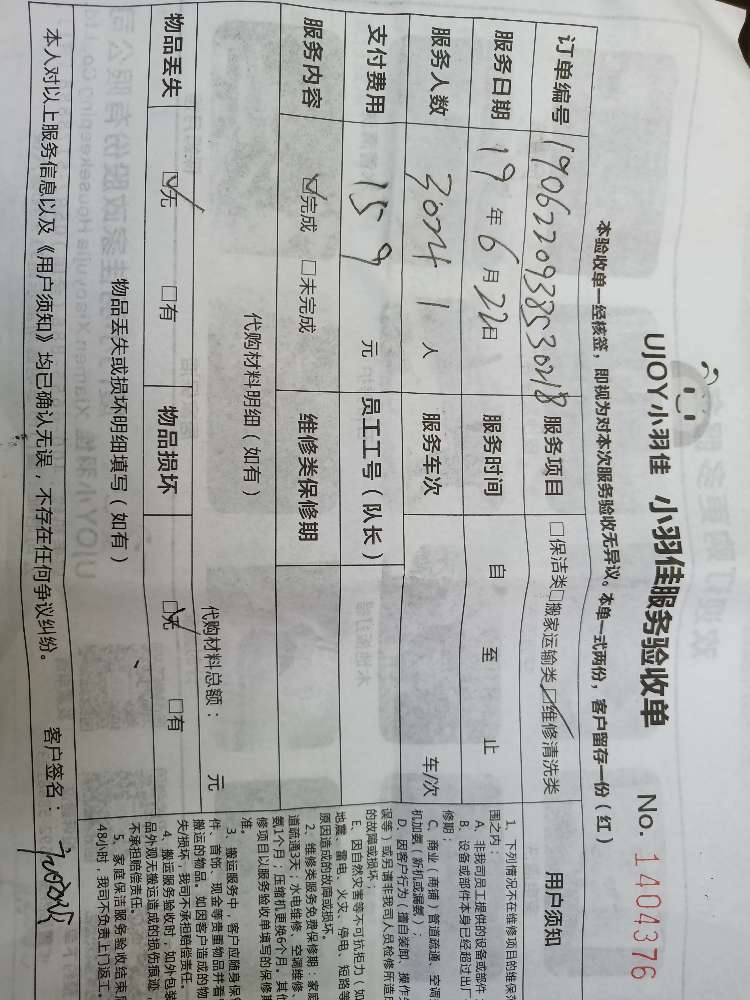 UJOY小羽佳 小羽佳服务验收单 No. 1404376
本验收单一经核签，即视为对本次服务验收无异议。本单一式两份，客户留存一份（红）
订单编号 服务项目 □保洁类□搬家运输类☑维修清洗类
服务日期 19年6月22日 服务时间 自 至 止
服务人数 1人 服务车次 车/次
支付费用 159 元 员工工号（队长）
服务内容 ☑完成 □未完成 维修类保修期
代购材料明细（如有） 代购材料总额： 元
物品丢失 ☑无 □有 物品损坏 ☑无 □有
物品丢失或损坏明细填写（如有）
本人对以上服务信息以及《用户须知》均已确认无误，不存在任何争议纠纷。 客户签名：
用户须知
1、下列情况不在维修项目的维保
围之内：
A、非我司员工提供的设备或部件
B、设备或部件本身已经超过出厂
修期；
C、商业（商铺）管道疏通、空调
机加氨（新机或漏氨）；
D、因客户行为（擅自装卸、操作
误等）或另请非我司人员检修所造
的故障或损坏；
E、因自然灾害等不可抗拒力（如
地震、雷电、火灾、停电、短路等
原因造成的故障或损坏。
2、维修类服务免费保修期：家庭
道疏通3天；水电维修、空调维修、
氨1个月；压缩机更换6个月。其
修项目以服务验收单填写的保修
准。
3、搬运服务中，客户应随身保
件、首饰、现金等贵重物品并看
搬运的物品。如因客户造成的物
失/损坏，我司不承担赔偿责任。
4、搬运服务验收时，如外包装
品外观无搬运造成的损伤痕迹，
不承担赔偿责任。
5、家庭保洁服务验收结束后
48小时，我司不负责上门返工。